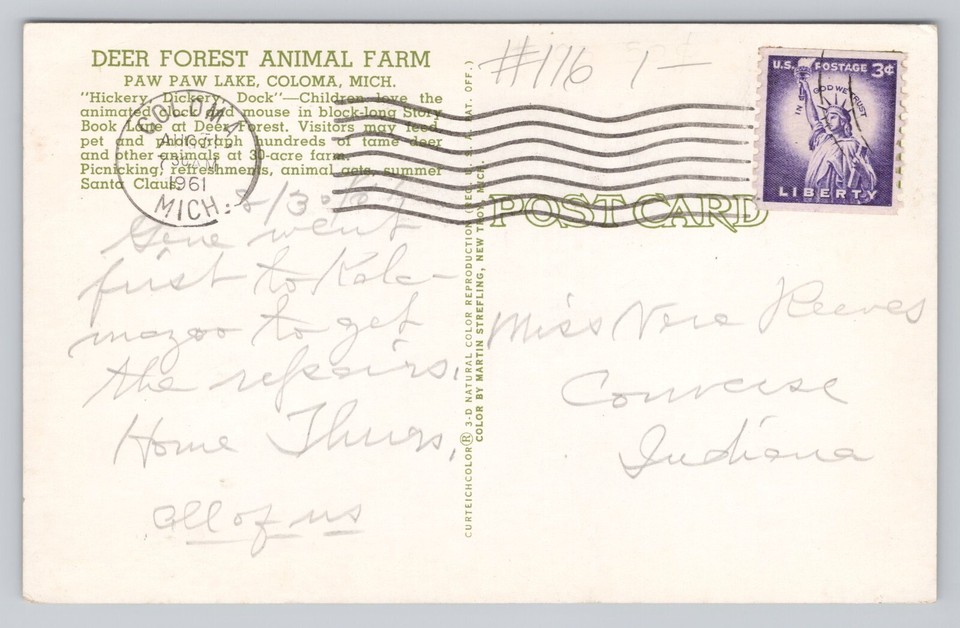 DEER FOREST ANIMAL FARM
PAW PAW LAKE, COLOMA, MICH.
"Hickery, Dickery, Dock"—Children love the
animated clock and mouse in block-long Story
Book Lane at Deer Forest. Visitors may feed,
pet and photograph hundreds of tame deer
and other animals at 30-acre farm.
Picnicking, refreshments, animal acts, summer
Santa Claus.
COLOMA
AUG
AM
1961
MICH.
Gene went
first to Kala-
mazoo to get
the repairs.
Home Thurs.
All of us
CURTEICHCOLOR® 3-D NATURAL COLOR REPRODUCTION (REG. U. S. A. PAT. OFF.)
COLOR BY MARTIN STREFLING, NEW TROY, MICH.
#116 1—
U.S. POSTAGE 3¢
IN GOD WE TRUST
LIBERTY
POST CARD
Miss Vera Reeves
Converse
Indiana